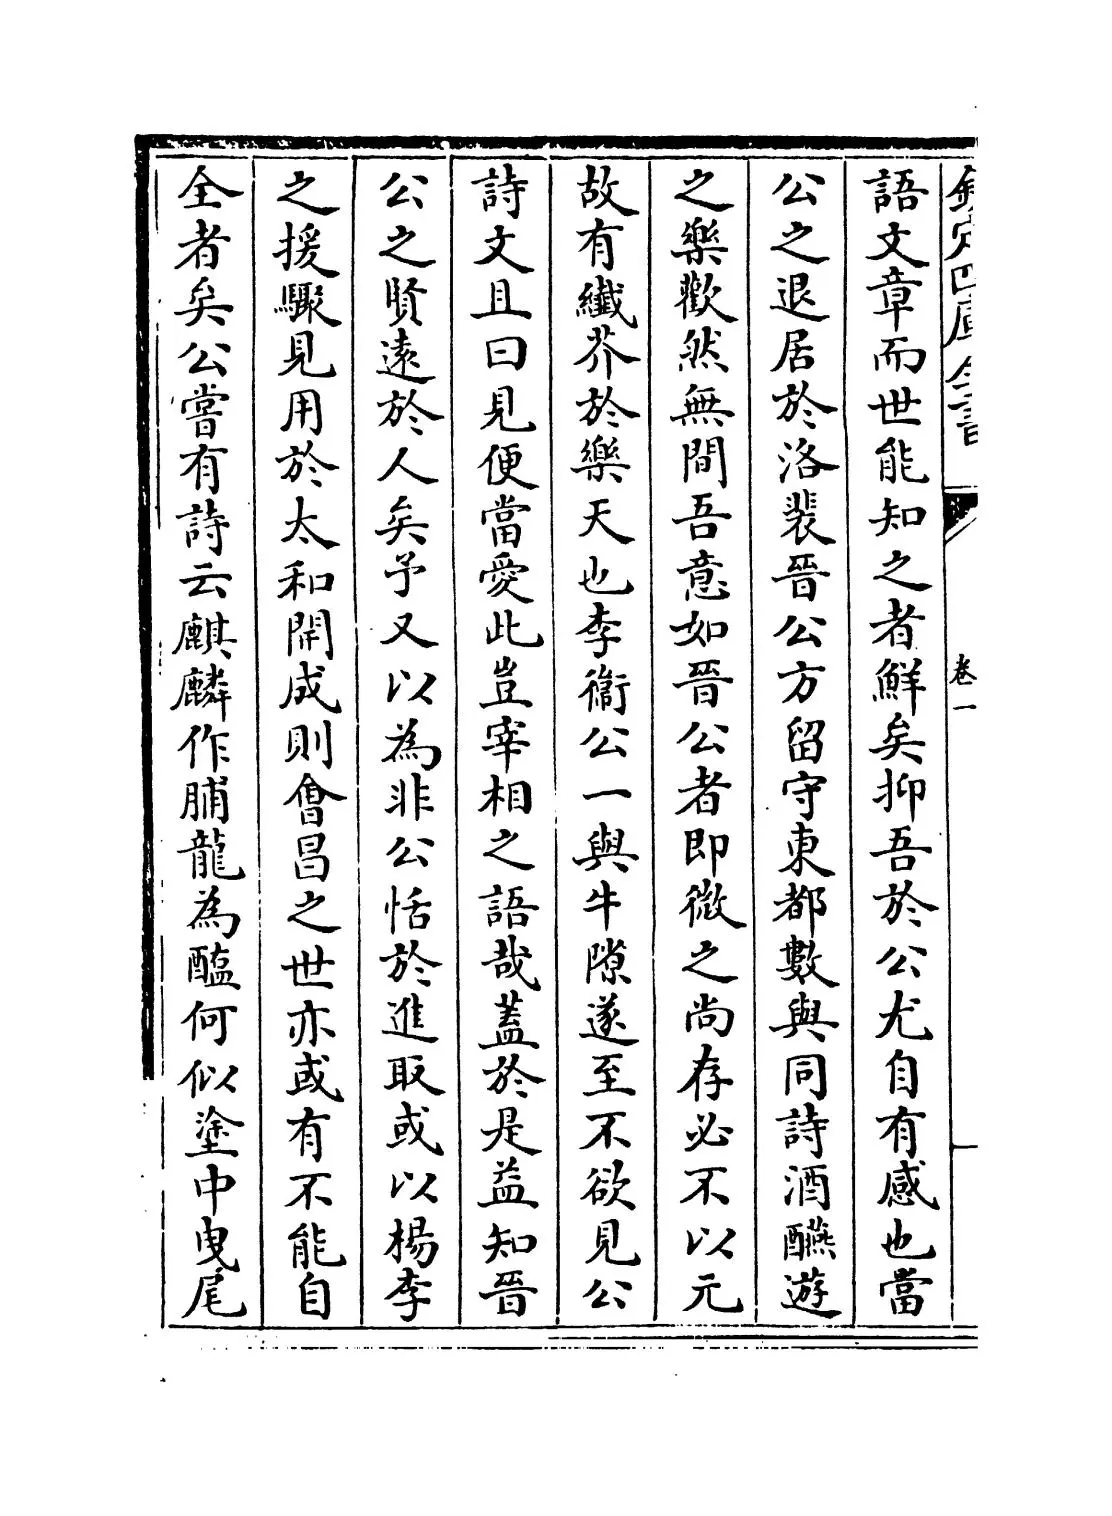 欽定四庫全書
卷一
語文章而世能知之者鮮矣抑吾於公尤自有感也當
公之退居於洛裴晉公方留守東都數與同詩酒醼遊
之樂歡然無間吾意如晉公者即微之尚存必不以元
故有纖芥於樂天也李衞公一與牛隙遂至不欲見公
詩文且曰見便當愛此豈宰相之語哉蓋於是益知晉
公之賢遠於人矣予又以為非公恬於進取或以楊李
之援驟見用於太和開成則會昌之世亦或有不能自
全者矣公嘗有詩云麒麟作脯龍為醢何似塗中曳尾